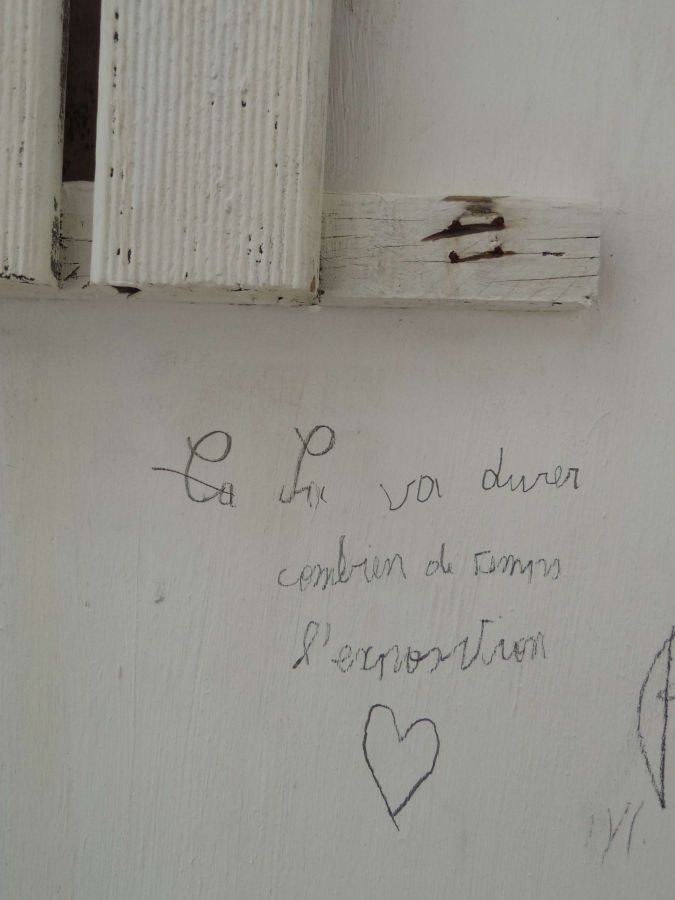 Ca Sa va durer
combien de temps
l'exposition